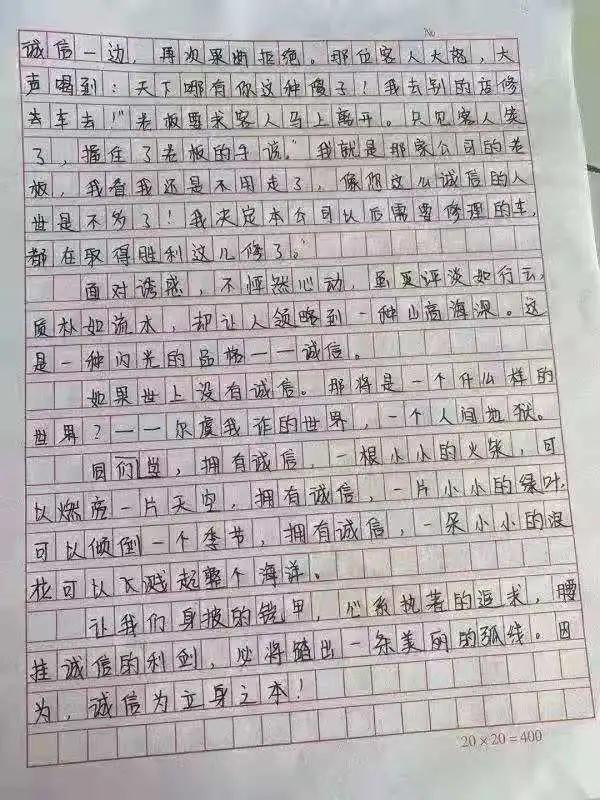 No
诚信一边，再次果断拒绝。那位客人大怒，大
声喝到：天下哪有你这种傻子！我去别的店修
去车去！"老板要求客人马上离开。只见客人笑
了，握住了老板的手说："我就是那家公司的老
板，我看我还是不用走了，像您这么诚信的人
世是不多了！我决定本公司以后需要修理的车，
都在取得胜利这儿修了。"
面对诱惑，不怦然心动，虽更评淡如行云，
质朴如流本，却让人领略到一种山高海深。这
是一种闪光的品格——诚信。
如果世上没有诚信。那将是一个什么样的
世界？——尔虞我诈的世界，一个人间地狱。
同们学，拥有诚信，一根小小的火柴，可
以燃亮一片天空，拥有诚信，一片小小的绿叶，
可以倾倒一个季节，拥有诚信，一朵小小的浪
花可以飞溅起整个海洋。
让我们身披的铠甲，心系执著的追求，腰
挂诚信的利剑，必将踏出一条美丽的弧线。因
为，诚信为立身之本！
20×20=400